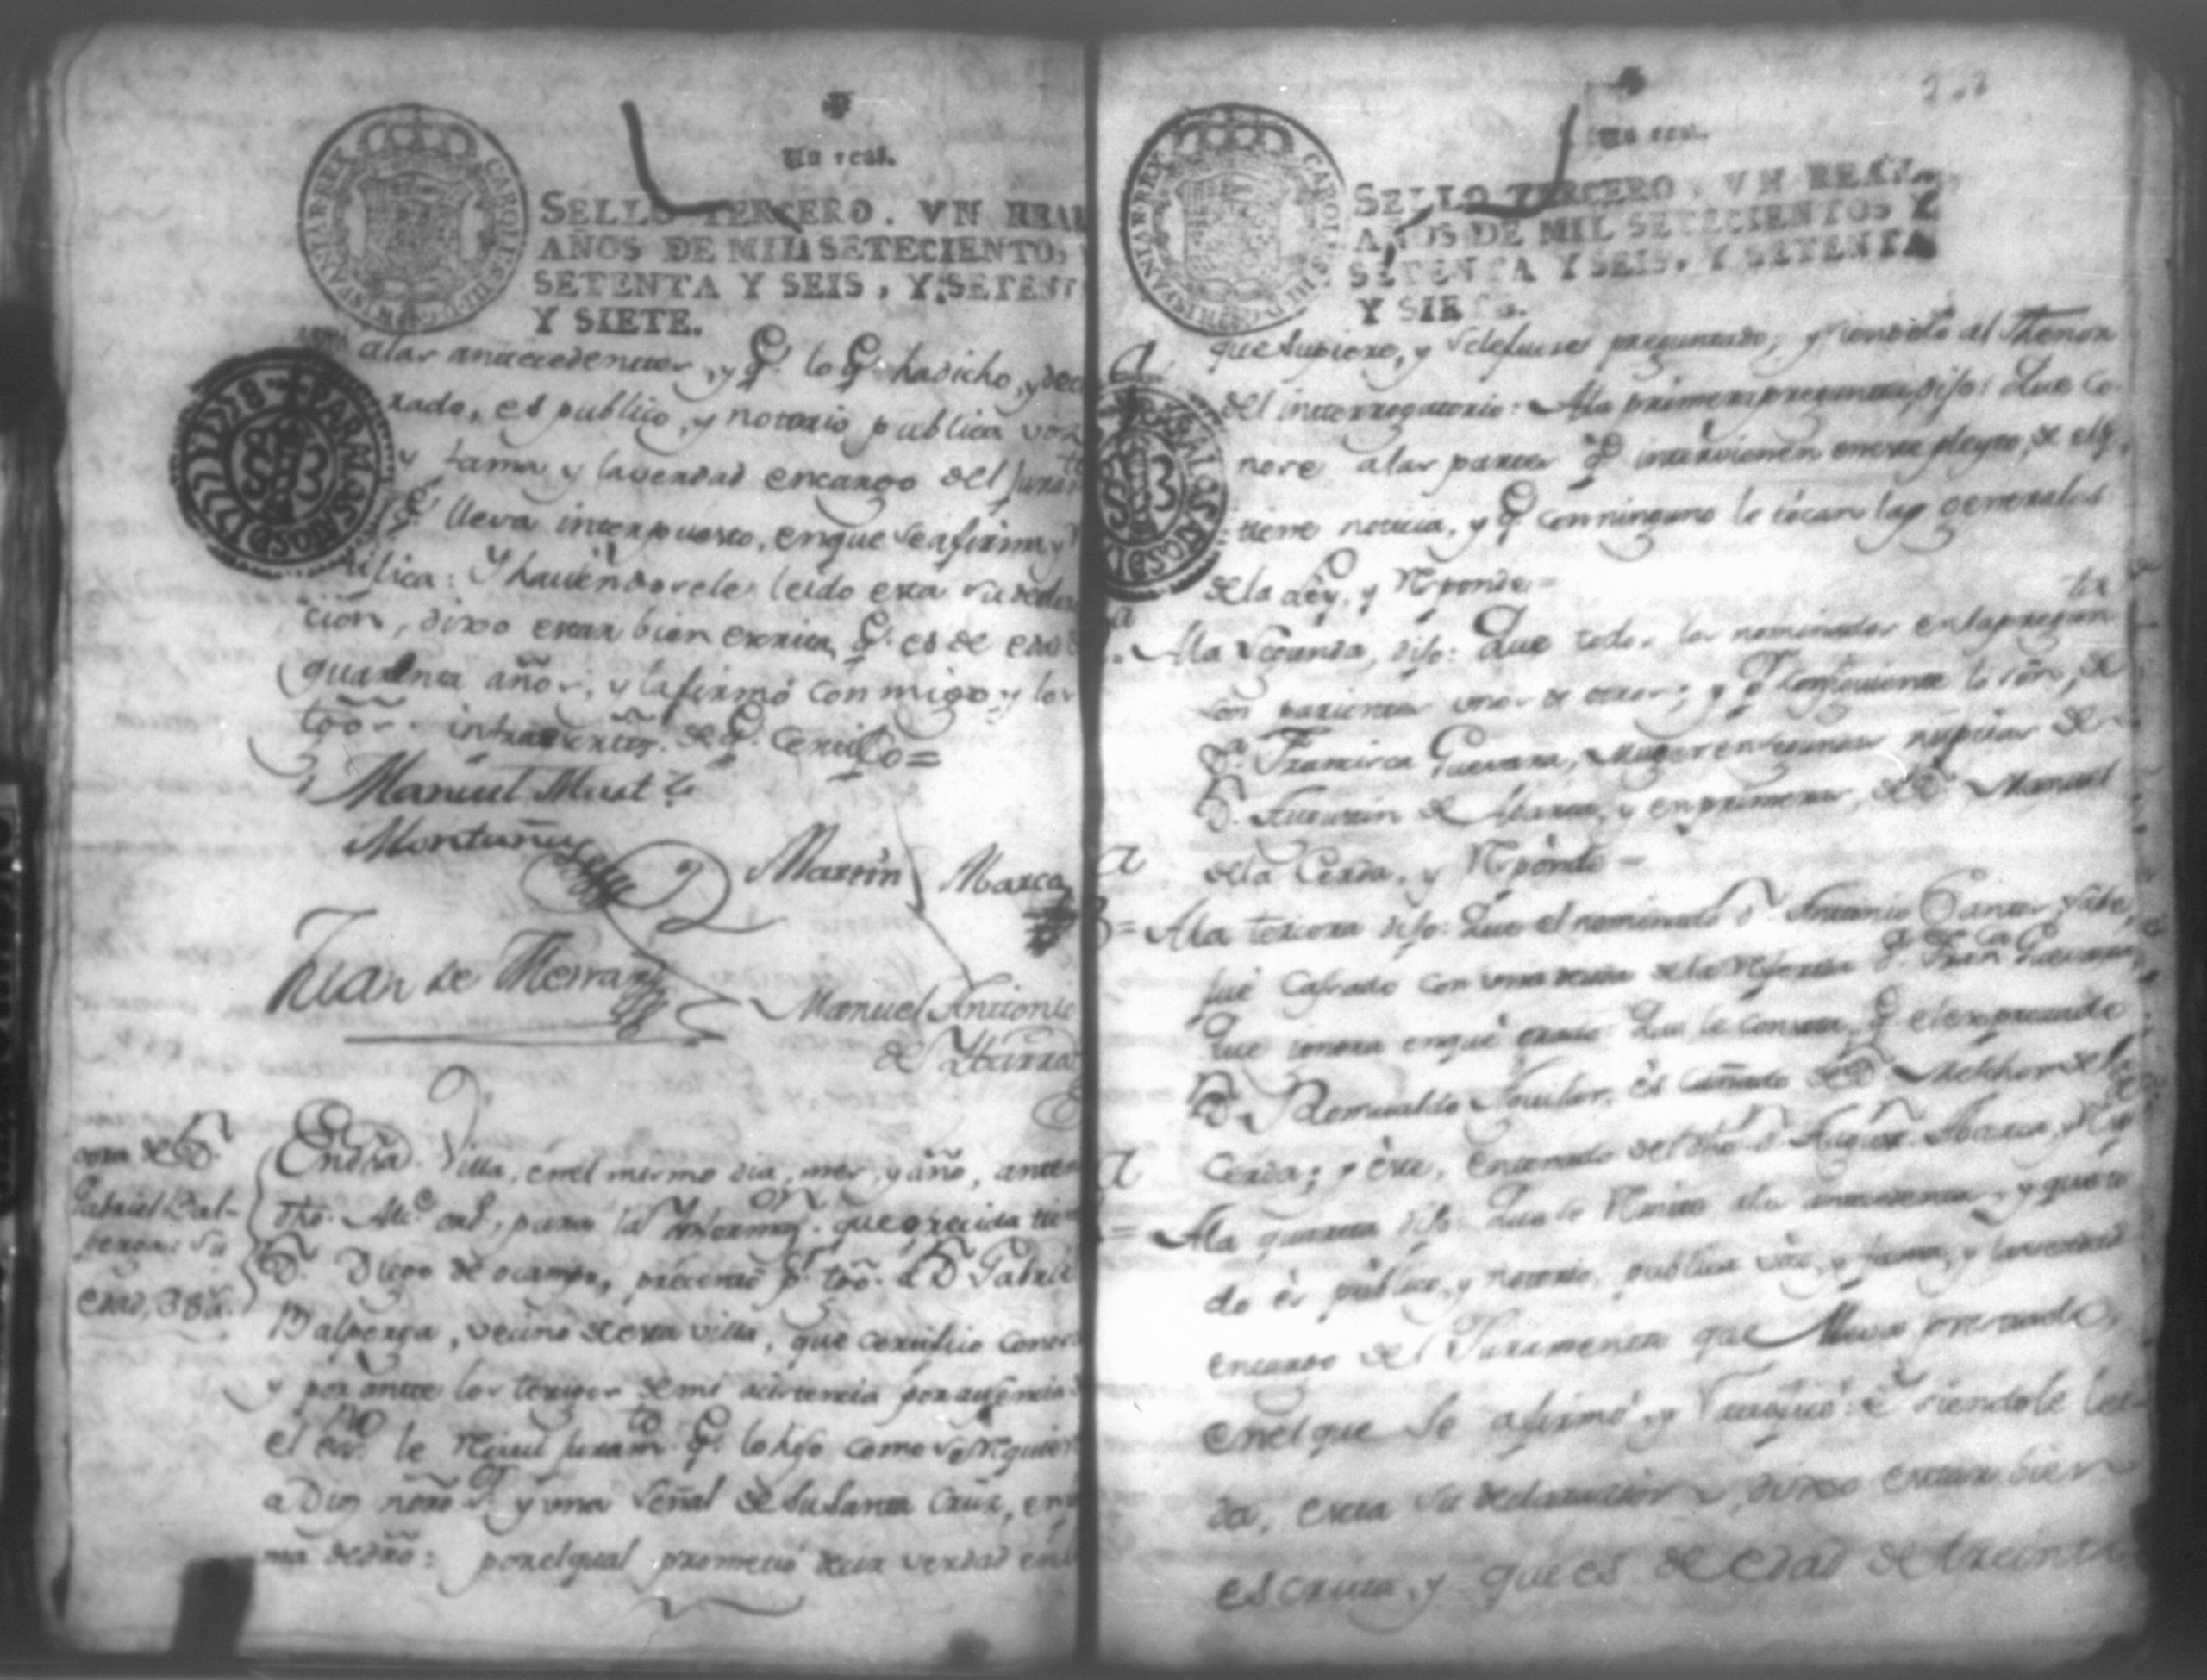 Un real.
SELLO TERCERO. VN REAL
AÑOS DE MIL SETECIENTOS
SETENTA Y SEIS, Y SETENT
Y SIETE.
CAROLUS III D G HISPANIAR REX
PARA LOS AÑOS D 1777 Y 1778
a las antecedentes, y q.e lo q.e ha dicho, y decla
rado, es publico, y notorio, publica voz
y fama, y la verdad en cargo del juram.to
q.e lleva interpuesto, en que se afirma, y
rifica: Y haviendosele leido esta su declara
cion, dixo estar bien escrita, q.e es de edad d
quarenta años, y la firmó con migo, y los
tgõs. de q.e Certifico =
Manuel
Montañes
Martin Marca
Juan de Herran
Manuel Antonio
de Ybarra
otra de D.n
Gabriel Bal-
perga: su
edad, 38 a.s
En dha Villa, en el mismo dia, mes, y año, ante
dho. Alc.e ord.o, para la Informaz.on que ofrecida tie
D.n Diego de ocampo, presentó p.r tgõ. a D.n Gabriel
Balperga, vecino de esta villa, que certifico conoz
y por ante los testigos de mi asistencia por ausencia d
el es.no le Reciví juram.to q.e lo hizo como se Requiere
a Dios nrõ S.r y una señal de su Santa Cruz, en for
ma de drõ: por el qual prometió decir verdad en l
Un real.
SELLO TERCERO, VN REAL
AÑOS DE MIL SETECIENTOS Y
SETENTA Y SEIS, Y SETENTA
Y SIETE.
CAROLUS III D G HISPANIAR REX
que supiere, y se le fuere preguntado, y siendolo al Thenor
del interrogatorio: A la primera pregunta, dijo: Que Co-
noce a las partes q.e intervienen en este pleyto, de el q.e
tiene noticia, y q.e con ninguno le tocan las generales
de la Ley, y Rponde =
A la Segunda, dijo: Que todos los nominados en la pregun.ta
son parientes unos de otros; y q.e Consiguiente lo son, de
D.a Francisca Guevara, muger en segundas nupcias de
D.n Agustin de Abarca, y en primeras, de D.n Manuel
de la Cerda, y Rponde =
A la tercera dijo: Que el nominado D.n Antonio Santos sabe,
fue Casado con una deuda de la Referida D.a Fran.ca Guevara
que ignora en qué grado: Que le consta, q.e el expresado
D.n Romualdo Aguilar, es Cuñado de D.n Melchor de la
Cerda; y este, Entenado del dho D.n Agustin Abarca, y Rp.de
A la quarta dijo: Que se Remite a las antecedentes, y que to
do es público, y notorio, publica voz, y fama, y la verdad
en cargo del Juramento que lleva prestado,
en el que se afirmó, y Ratificó: é siendole lei-
da, esta su declaracion, dixo estar bien
escrita, y que es de edad de treinta